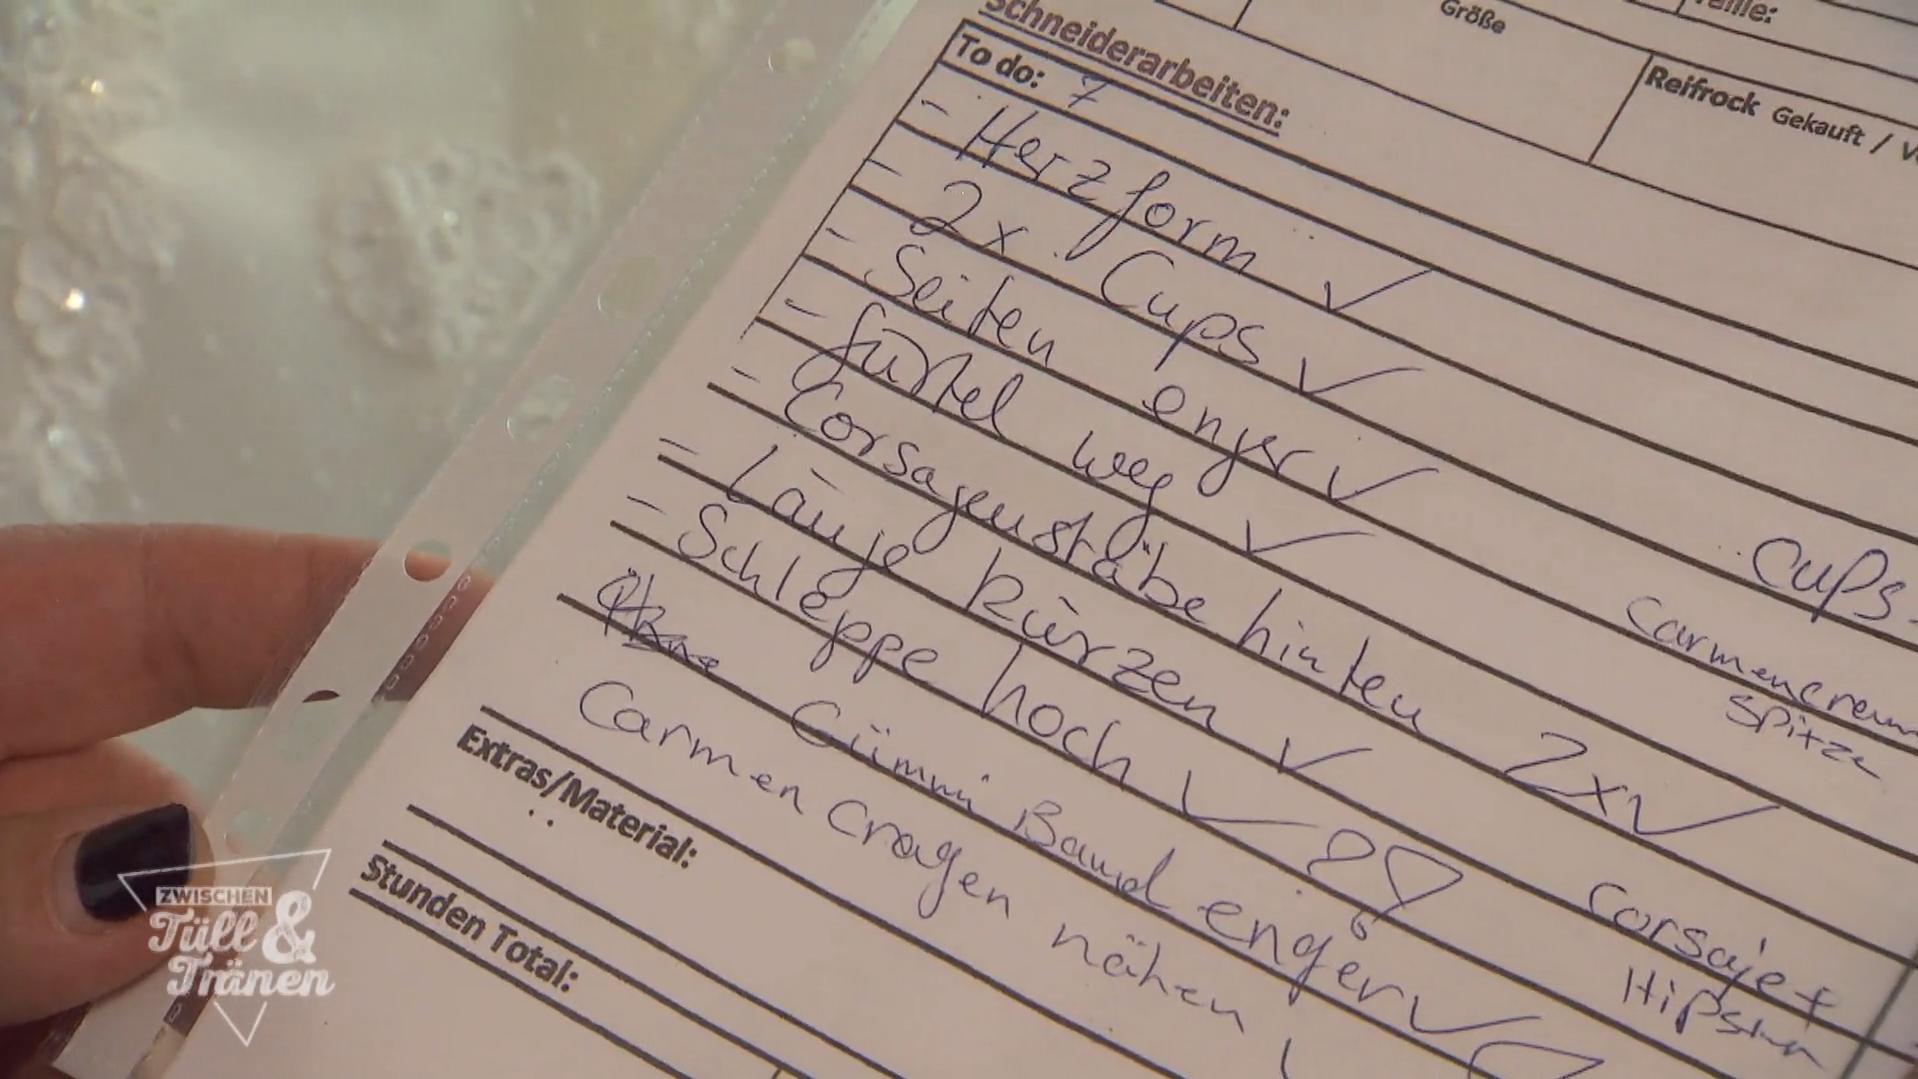 Größe
Taille:
Reifrock Gekauft /
Schneiderarbeiten:
To do: 7
- Herzform ✓
- 2x Cups ✓
- Seiten enger ✓
- Gürtel weg ✓
Cups
- Corsagenstäbe hinten 2x ✓
Carmencreme
Spitze
- Länge kürzen ✓
- Schleppe hoch ✓
Gümmi Band enger ✓
Corsaje +
Carmen Cragen nähen
Extras/Material:
Stunden Total:
ZWISCHEN
Tüll &
Tränen